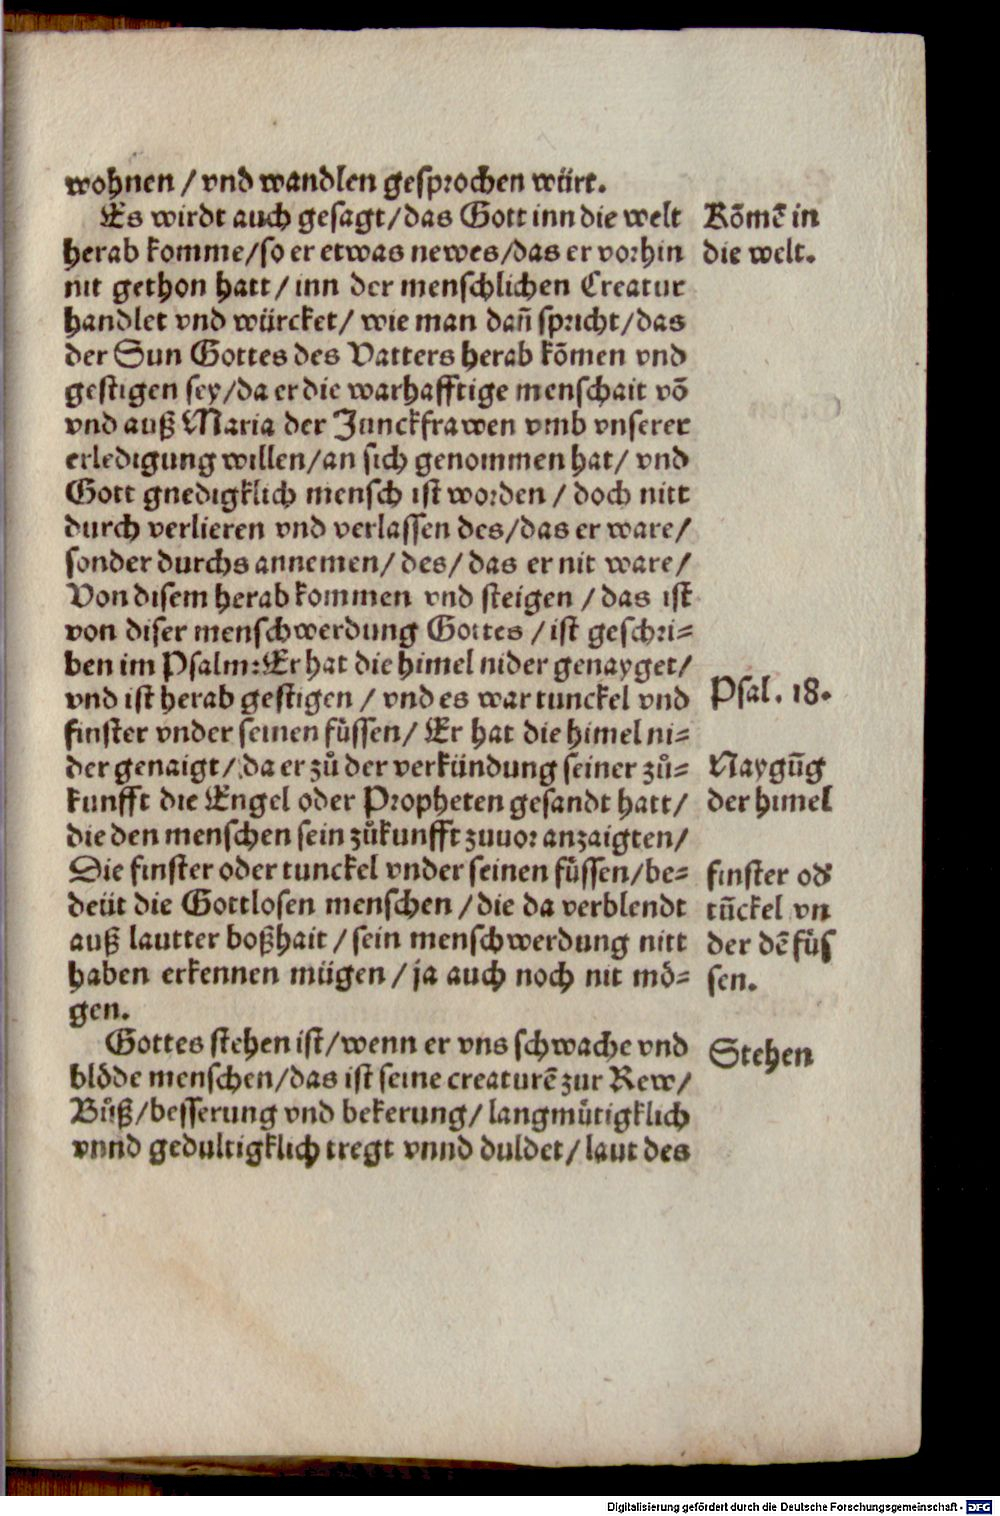 wohnen / vnd wandlen gesprochen würt.
Es wirdt auch gesagt / das Gott inn die welt
herab komme / so er etwas newes / das er vorhin
nit gethon hatt / inn der menschlichen Creatur
handlet vnd würcket / wie man dañ spricht / das
der Sun Gottes des Vatters herab kõmen vnd
gestigen sey / da er die warhafftige menschait võ
vnd auß Maria der Junckfrawen vmb vnserer
erledigung willen / an sich genommen hat / vnd
Gott gnedigklich mensch ist worden / doch nitt
durch verlieren vnd verlassen des / das er ware /
sonder durchs annemen / des / das er nit ware /
Von disem herab kommen vnd steigen / das ist
von diser menschwerdung Gottes / ist geschri=
ben im Psalm: Er hat die himel nider genayget /
vnd ist herab gestigen / vnd es war tunckel vnd
finster vnder seinen füssen / Er hat die himel ni=
der genaigt / da er zů der verkündung seiner zů=
kunfft die Engel oder Propheten gesandt hatt /
die den menschen sein zůkunfft zuuor anzaigten /
Die finster oder tunckel vnder seinen füssen / be=
deüt die Gottlosen menschen / die da verblendt
auß lautter boßhait / sein menschwerdung nitt
haben erkennen mügen / ja auch noch nit mö=
gen.
Gottes stehen ist / wenn er vns schwache vnd
blöde menschen / das ist seine creaturẽ zur Rew /
Bůß / besserung vnd bekerung / langmütigklich
vnnd gedultigklich tregt vnnd duldet / laut des
Kõmẽ in
die welt.
Psal. 18.
Naygũg
der himel
finster od'
tũckel vn
der dẽ füs
sen.
Stehen
Digitalisierung gefördert durch die Deutsche Forschungsgemeinschaft - DFG